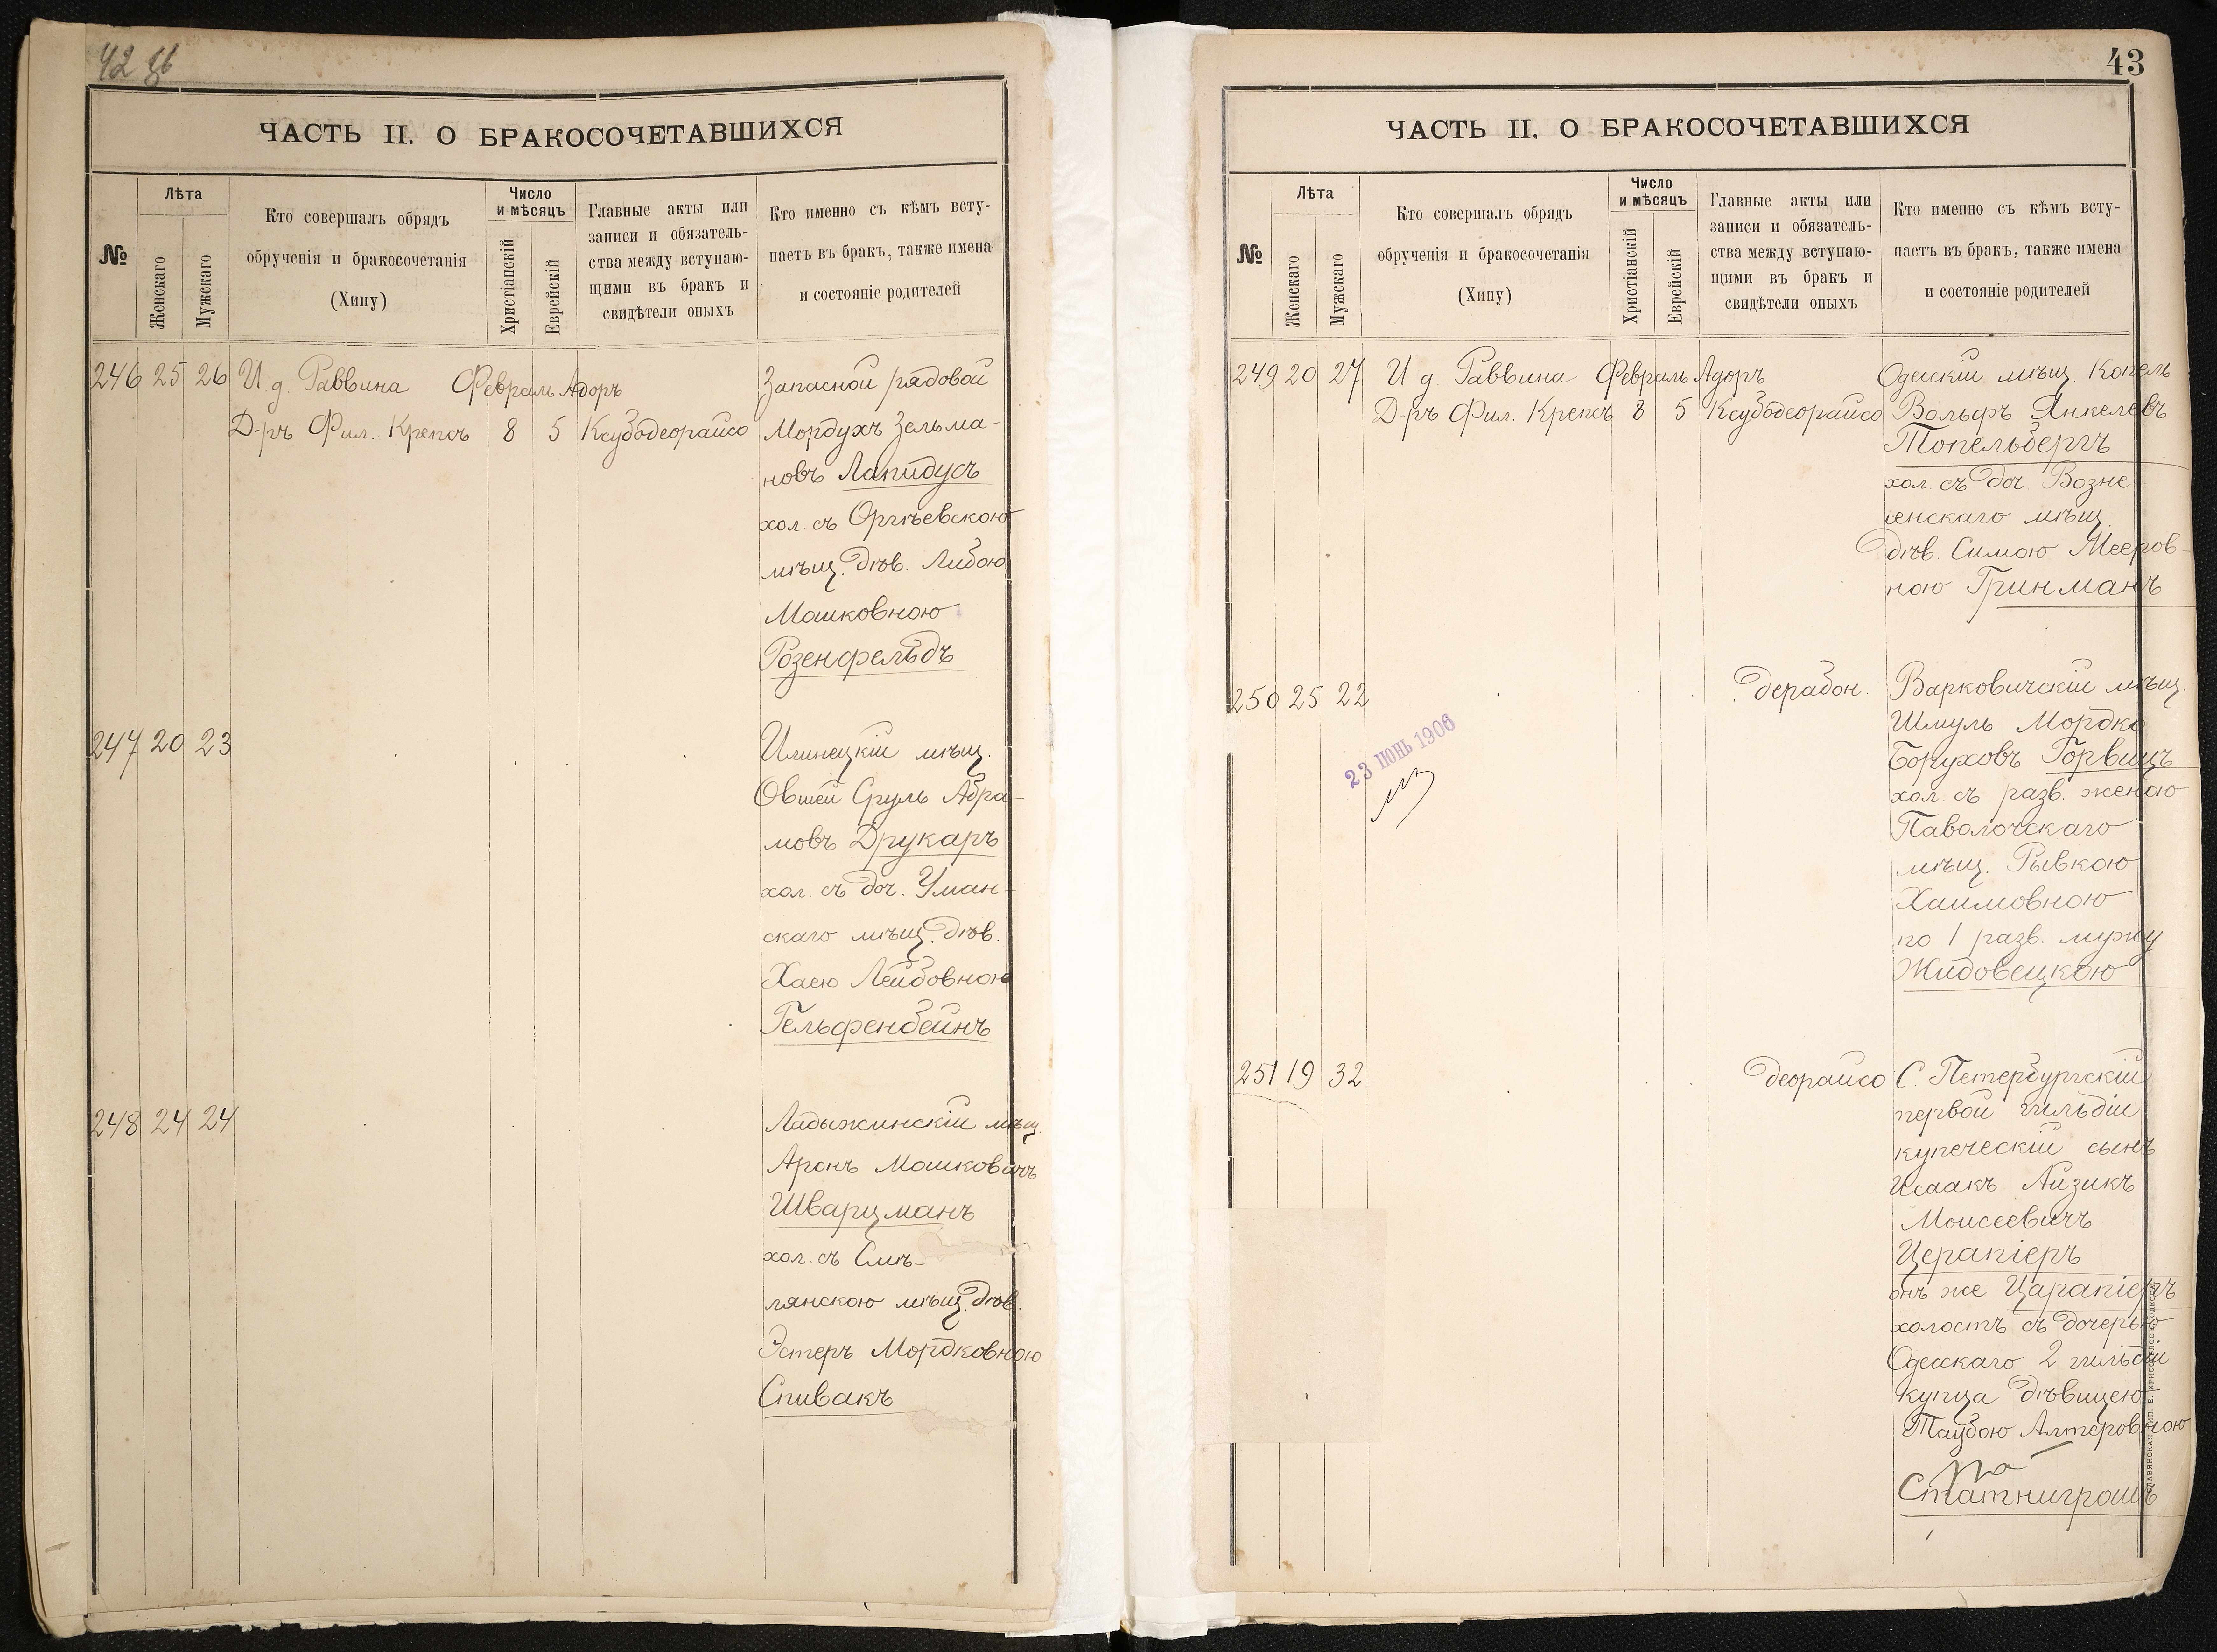 42 об
ЧАСТЬ II. О БРАКОСОЧЕТАВШИХСЯ
№
Лѣта
Женскаго
Мужскаго
Кто совершалъ обрядъ
обрученія и бракосочетанія
(Хипу)
Число
и мѣсяцъ
Христіанскій
Еврейскій
Главные акты или
записи и обязатель-
ства между вступаю-
щими въ бракъ и
свидѣтели оныхъ
Кто именно съ кѣмъ всту-
паетъ въ бракъ, также имена
и состояніе родителей
246 25 26 И. д. Раввина Февраль Адоръ Запасной рядовой
Д-ръ Фил. Крепсъ 8 5 Ксубодеорайсо Мордухъ Зельма-
новъ Лапидусъ
хол. съ Оргѣевскою
мѣщ. дѣв. Либою
Мошковною
Розенфельдъ
247 20 23 Илинецкій мѣщ.
Овшей Сруль Абра-
мовъ Друкаръ
хол. съ доч. Уман-
скаго мѣщ. дѣв.
Хаею Лейбовною
Гельфенбейнъ
248 24 24 Ладыжинскій мѣщ.
Аронъ Мошковичъ
Шварцманъ
хол. съ Смѣ-
лянскою мѣщ. дѣв.
Эстеръ Мордковною
Спивакъ
43
ЧАСТЬ II. О БРАКОСОЧЕТАВШИХСЯ
№
Лѣта
Женскаго
Мужскаго
Кто совершалъ обрядъ
обрученія и бракосочетанія
(Хипу)
Число
и мѣсяцъ
Христіанскій
Еврейскій
Главные акты или
записи и обязатель-
ства между вступаю-
щими въ бракъ и
свидѣтели оныхъ
Кто именно съ кѣмъ всту-
паетъ въ бракъ, также имена
и состояніе родителей
249 20 27 И д. Раввина Февраль Адоръ Одесскій мѣщ. Копель
Д-ръ Фил. Крепсъ 8 5 Ксубодеорайсо Вольфъ Янкелевъ
Топельбергъ
хол. съ доч. Возне-
сенскаго мѣщ.
дѣв. Симою Мееров-
ною Гринманъ
250 25 22 дерабон. Варковичскій мѣщ.
Шмуль Мордко
Боруховъ Горвицъ
хол. съ разв. женою
Паволочскаго
мѣщ. Рывкою
Хаимовною
по 1 разв. мужу
Жидовецкою
23 ІЮНЬ 1906
251 19 32 деорайсо С. Петербургскій
первой гильдіи
купеческій сынъ
Исаакъ Айзикъ
Моисеевичъ
Церапіеръ
онъ же Царапіеръ
холостъ съ дочерью
Одесскаго 2 гильдіи
купца дѣвицею
Таубою Алтеровною
Статниграшъ